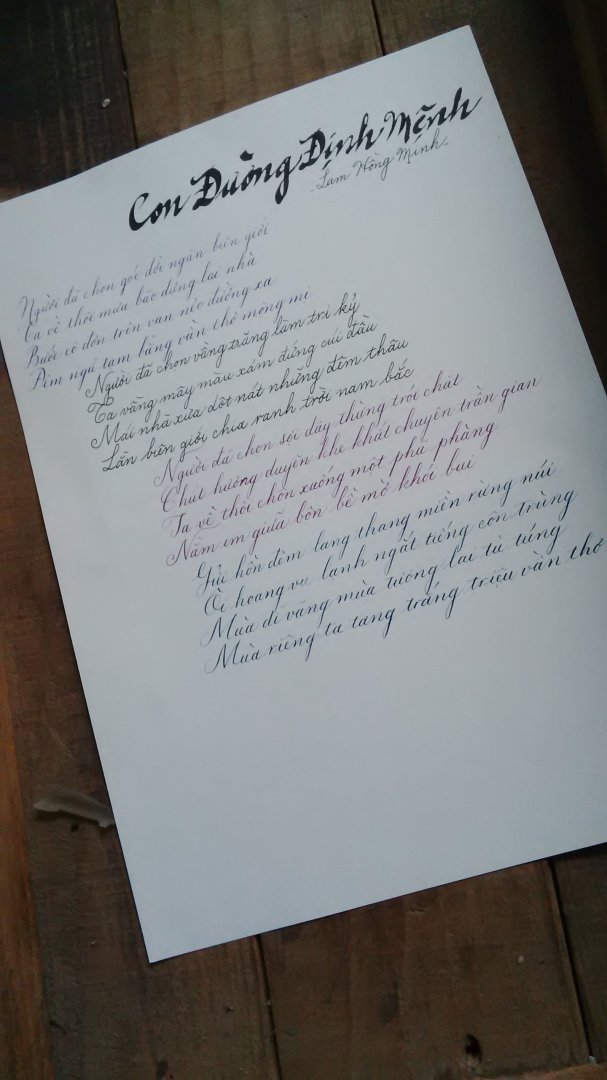 Con Đường Định Mệnh
- Lam Hồng Minh -
Người đã chọn gót đời ngăn biên giới
Ta về thôi mưa bão dừng lại nhà
Bước cô đơn trên vạn nẻo đường xa
Đêm ngủ tạm bằng vần thơ mộng mị
Người đã chọn vầng trăng làm tri kỷ
Ta vầng mây màu xám đứng cúi đầu
Mái nhà xưa dột nát những đêm thâu
Lằn biên giới chia ranh trời nam bắc
Người đã chọn sợi dây thừng trói chặt
Chút hương duyên khe khắt chuyện trần gian
Ta về thôi chôn xuống một phũ phàng
Nằm im giữa bốn bề mờ khói bụi
Gửi hồn đêm lang thang miền rừng núi
Ôi hoang vu lạnh ngắt tiếng côn trùng
Mùa dĩ vãng mùa tương lai tù túng
Mùa riêng ta tang trắng triệu vần thơ